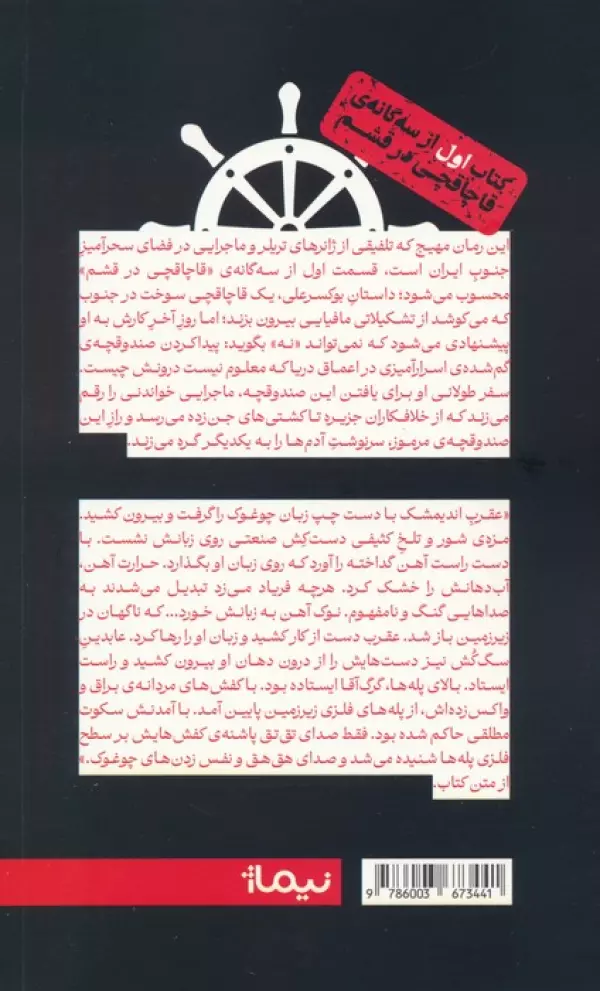 کتاب اول از سه‌گانه‌ی
قاچاقچی در قشم
این رمان مهیج که تلفیقی از ژانرهای تریلر و ماجرایی در فضای سحرآمیزِ
جنوبِ ایران است، قسمت اول از سه‌گانه‌ی «قاچاقچی در قشم»
محسوب می‌شود؛ داستانِ بوکسرعلی، یک قاچاقچی سوخت در جنوب
که می‌کوشد از تشکیلاتی مافیایی بیرون بزند؛ اما روزِ آخرِ کارش به او
پیشنهادی می‌شود که نمی‌تواند «نه» بگوید: پیدا کردن صندوقچه‌ی
گم‌شده‌ی اسرارآمیزی در اعماق دریا که معلوم نیست درونش چیست.
سفر طولانی او برای یافتن این صندوقچه، ماجرایی خواندنی را رقم
می‌زند که از خلافکاران جزیره تا کشتی‌های جن‌زده می‌رسد و رازِ این
صندوقچه‌ی مرموز، سرنوشتِ آدم‌ها را به یکدیگر گره می‌زند.
«عقربِ اندیمشک با دست چپ زبان چوغوک را گرفت و بیرون کشید.
مزه‌ی شور و تلخِ کثیفی دست‌کِش صنعتی روی زبانش نشست. با
دست راست آهن گداخته را آورد که روی زبان او بگذارد. حرارت آهن،
آب‌دهانش را خشک کرد. هرچه فریاد می‌زد تبدیل می‌شدند به
صداهایی گنگ و نامفهوم. نوک آهن به زبانش خورد... که ناگهان در
زیرزمین باز شد. عقرب دست از کار کشید و زبان او را رها کرد. عابدینِ
سگ‌کُش نیز دست‌هایش را از درون دهان او بیرون کشید و راست
ایستاد. بالای پله‌ها، گرگ‌آقا ایستاده بود. با کفش‌های مردانه‌ی براق و
واکس‌زده‌اش، از پله‌های فلزی زیرزمین پایین آمد. با آمدنش سکوت
مطلقی حاکم شده بود. فقط صدای تق‌تق پاشنه‌ی کفش‌هایش بر سطح
فلزی پله‌ها شنیده می‌شد و صدای هق‌هق و نفس زدن‌های چوغوک.»
از متن کتاب.
نیماژ
9 786003 673441